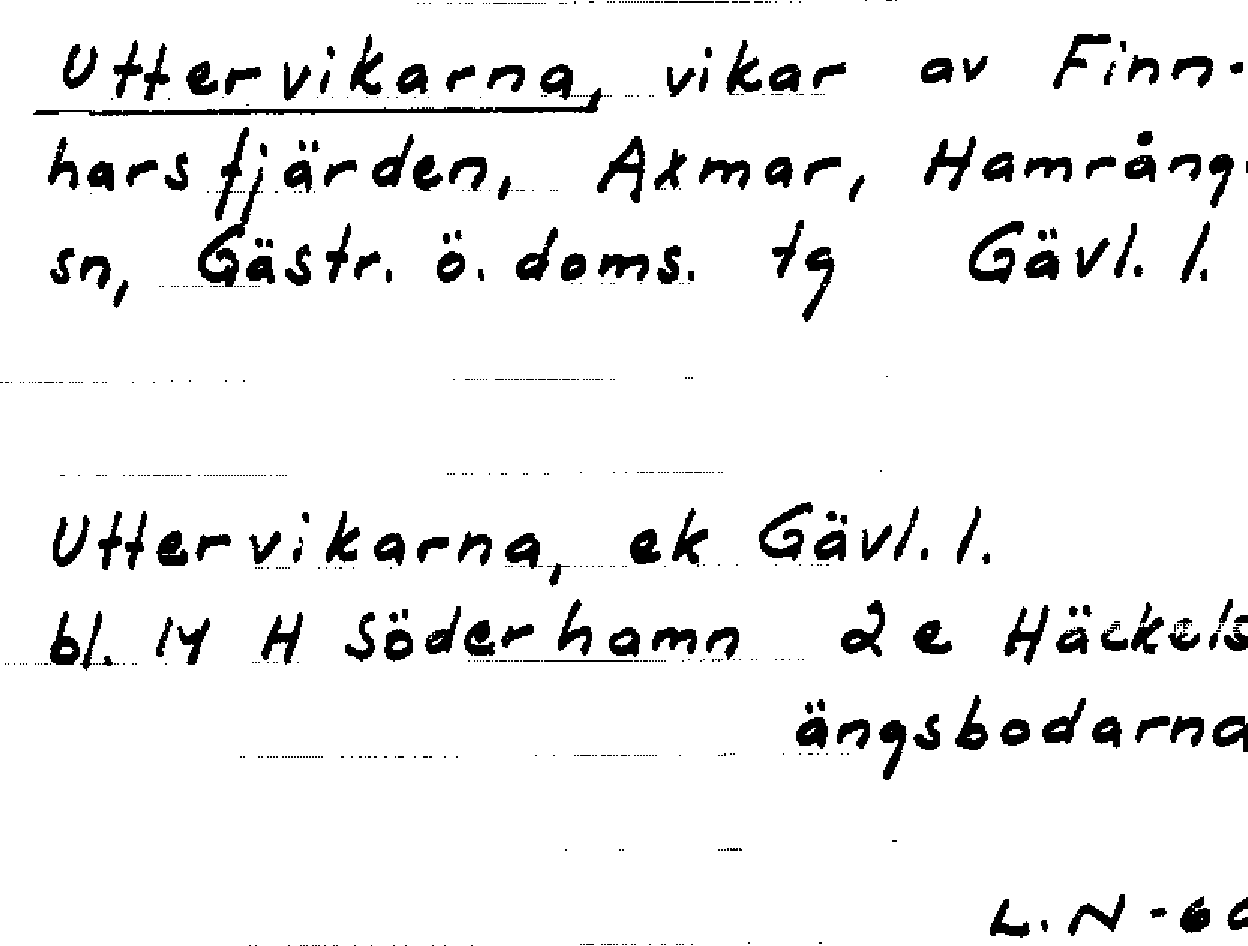 Uttervikarna, vikar av Finn-
harsfjärden, Axmar, Hamrång
sn, Gästr. ö. doms. tg Gävl. l.
Uttervikarna, ek Gävl. l.
bl. 14 H Söderhamn 2 e Häckels
ängsbodarna
L. N -60